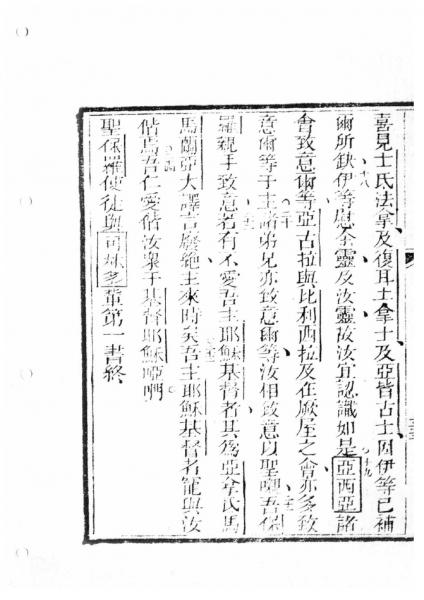 喜見士氏法拿及復耳土拿士及亞皆古士因伊等已補
爾所缺伊等慰余靈及汝靈故汝宜認識如是亞西亞諸
會致意爾等亞古拉與比利西拉及在厥屋之會亦多致
意爾等于主諸弟兄亦致意爾等汝相致意以聖吾保
羅親手致意若有不愛吾主耶穌基督者其為亞拿氏馬
馬蘭亞大譯言廢絕主來時矣吾主耶穌基督者寵與汝
偕焉吾仁愛偕汝眾于基督耶穌啞
聖保羅使徒與可林多輩第一書終